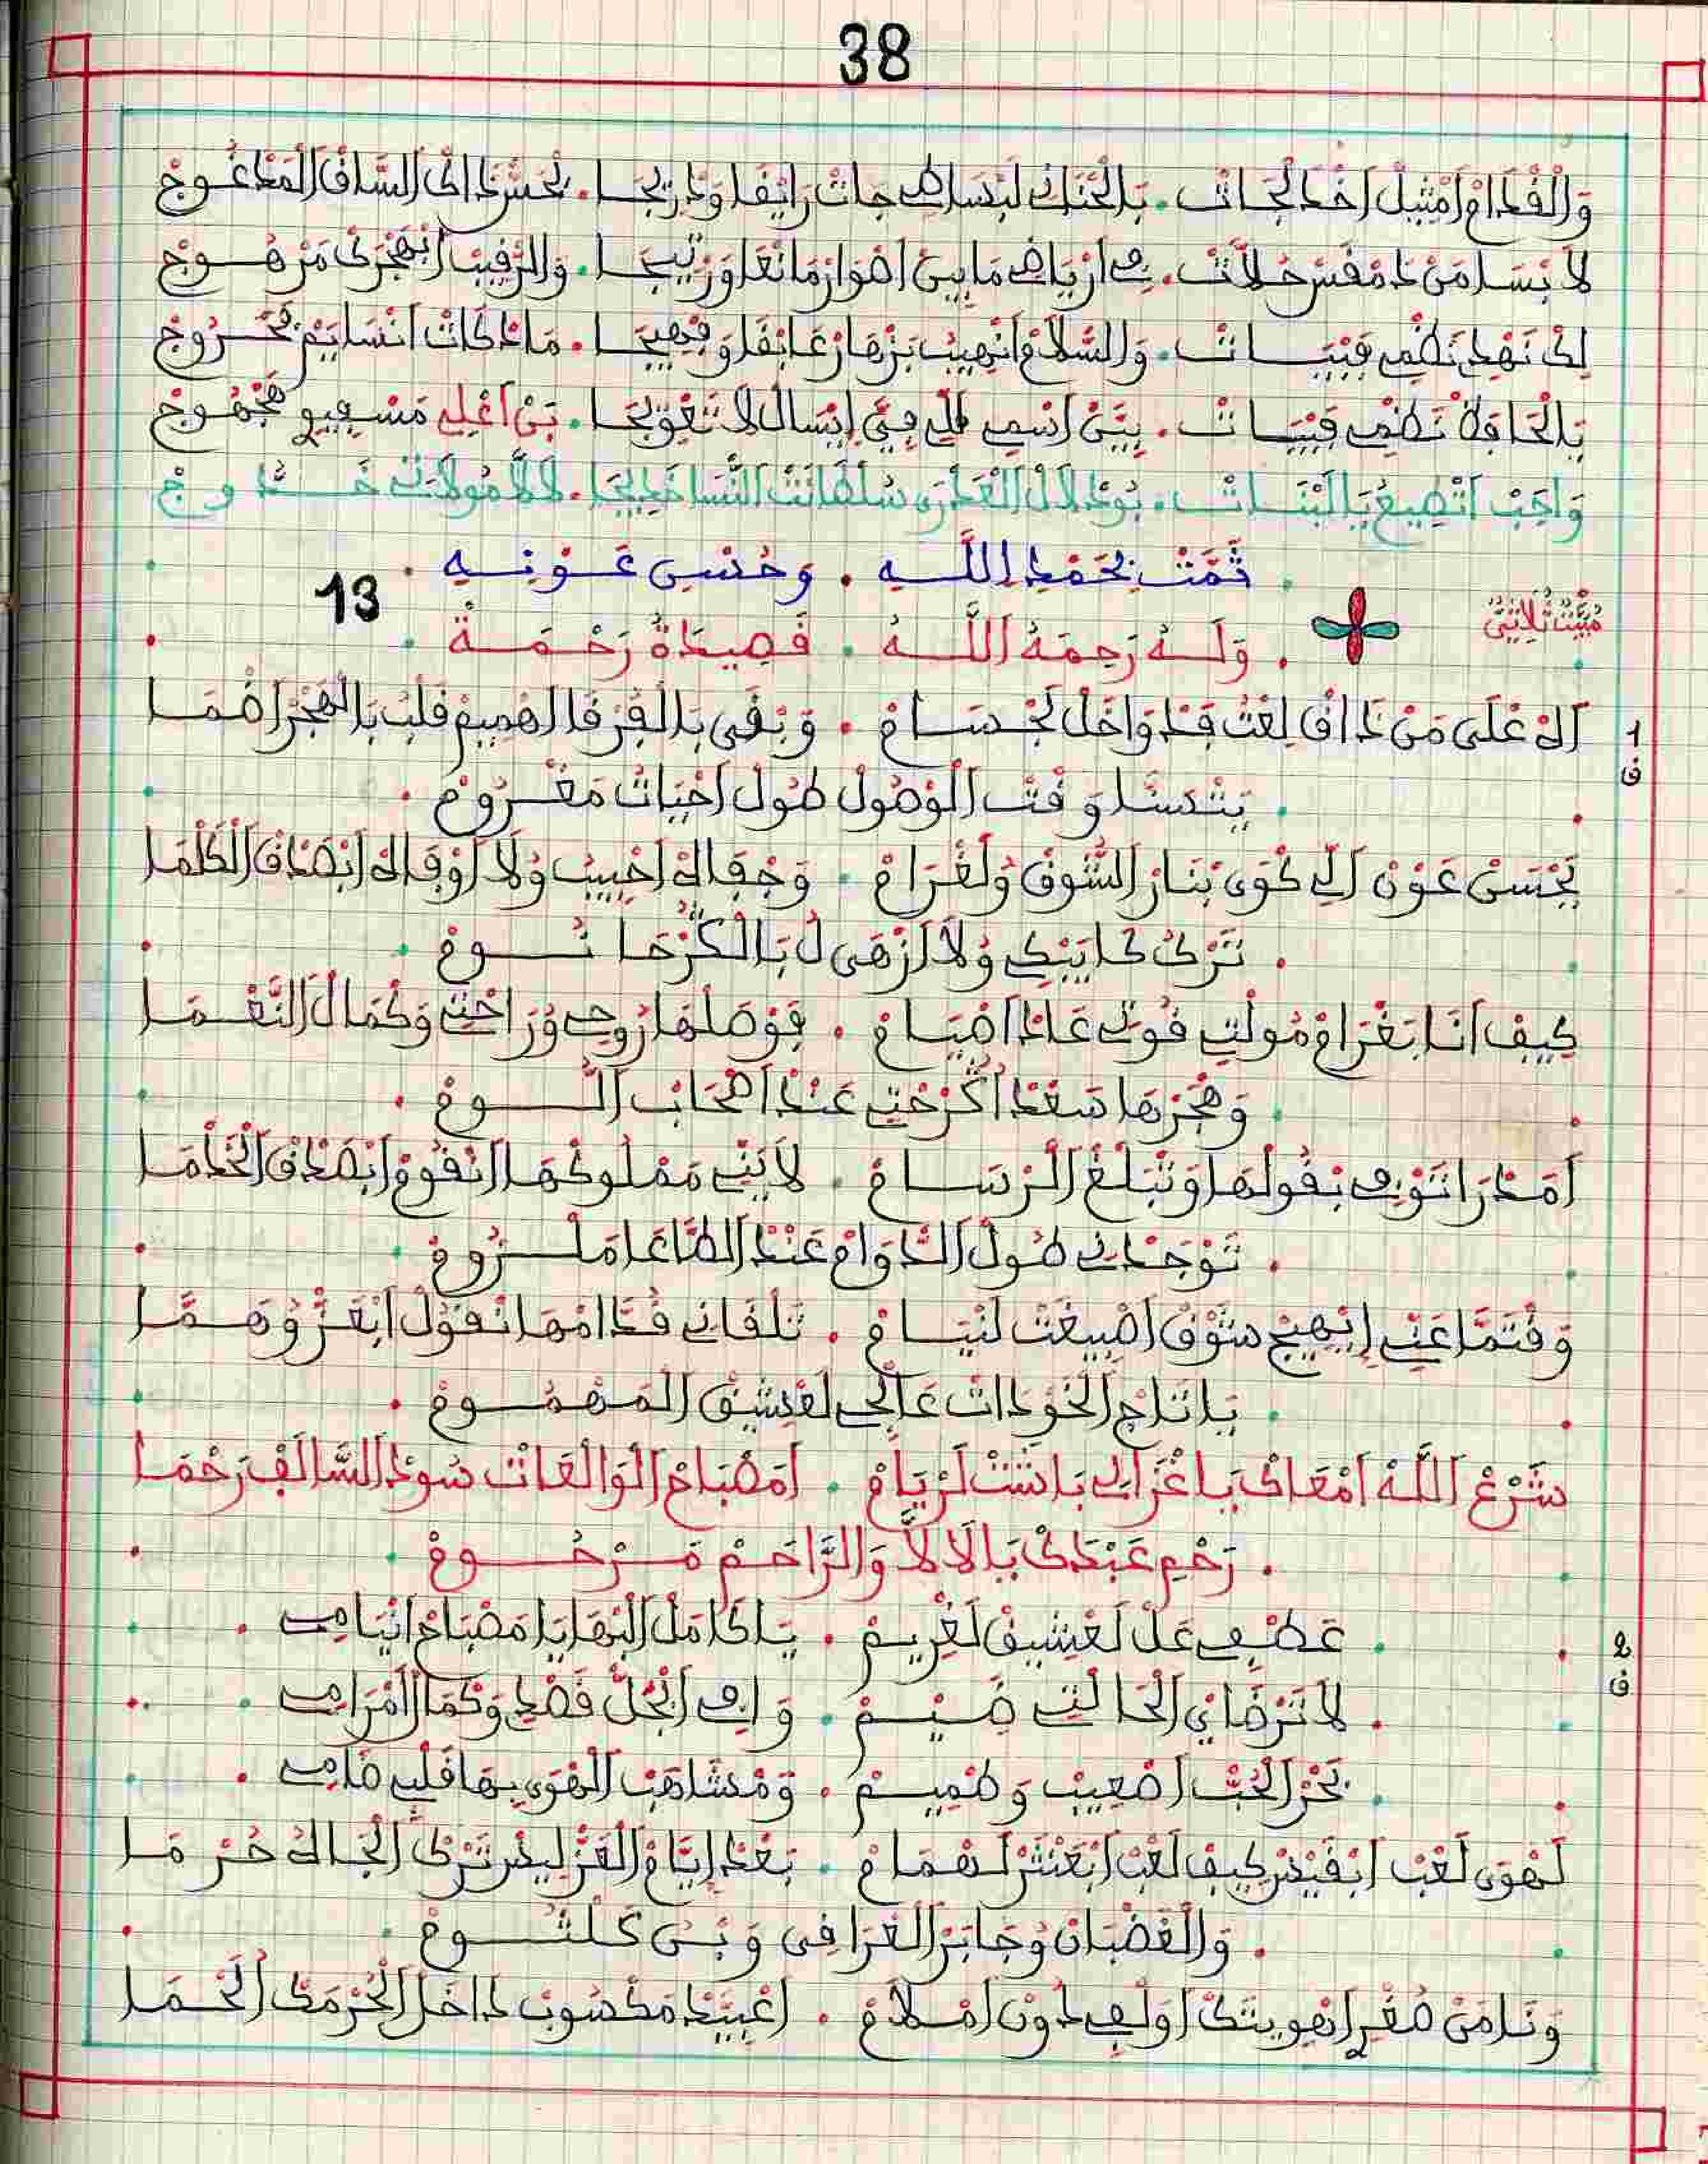 38
وَالْقْدَامْ اَمْثِيلْ اَخْدَلْجَاتْ. بَالْحَنَّانِي لَبْسَاطِي جَاتْ رَايْقَا وَدْرِيجَا. بَحْسْنْ دَاكْ السَّاقْ الْمَدْعُوجْ
لاَبْسَا مَنْ دَمْقَسْ حُلاَّتْ. فِي اَرْيَاضْ مَابِينْ اَطْوَارْ مَانْعَا وَزْرِيبَجَا. وَالرّْقِيبْ اَبْهَجْرَكْ مَرْهُوجْ
لِكْ نَهْدِي نَظْمِي فَبْيَاتْ. وَالسّْلاَمْ اَنْهِيبْ بَزْهَارْ عَابْقَا وَفْهِيجَا. مَادْكَاتْ اَنْسَايَمْ بَحْرُوجْ
يَالْحَافَظْ نَظْمِي فَبْيَاتْ. بِيَّنْ اَسْمِي لَلِّي فِيَّ اِيْسَالْ لاَ تَعْوِيجَا. بَنْ اَعْلِي مَسْفِيوِي مَجْهُوجْ
وَاجَبْ اَتْطِيعْ يَا الْبْنَاتْ. بُودْلاَلْ الْعَدْرَى سُلْطَانْتْ النّْسَا خْدِيجَا. لاَلَّة مُولاَتِي خَدُّوجْ
تَمَّتْ بَحَمْدِ اللَّهِ. وَحُسْنِ عَوْنِهِ
13
مُبَيَّتْ ثُلاَثِيّ
وَلَهُ رَحِمَهُ اللَّهُ. قَصِيدَةُ رَحْمَة
1
ف
اَلاهْ عْلَى مَنْ دَاقْ لِعْتْ قَدْوَاخَلْ لَجْسَامْ. وَبْقَى بَالْفُرْقَا الْهْمِيمْ قَلْبُ بَالْهْجَرْ اَظْمَا
يَتْسَنَّا وَقْتْ الْوْصُولْ طُولْ اَحْيَاتُ مَغْرُومْ
يَحْسَنْ عَوْنْ اَلِّي كْوَى بْنَارْ الشُّوقْ وُلَغْرَامْ. وَجْفَالهْ اَحْبِيبُ وُلاَ اَوْفَالهْ اَبْصَدْقْ الْكَلْمَا
تَرْكُ كَايَبْكِي وُلاَ اَزْهَى لُ بَالْكَرْحَا نُومْ
كِيفْ اَنَا بَغْرَامْ مُولْتِي قُوتِي عَادْ اَصْيَامْ. فَوْصَلْهَا رُوحِي وُرَاحْتِي وَكْمَالْ النَّعْمَا
وَهْجَرْهَا سَعْدْ اَكْرَحْتِي عَنْدْ اَصْحَابْ اللُّومْ
اَمَدْرَا تَوْفِي بْقُولْهَا وَتْبَلَّغْ الرْسَامْ. لاَيَنِّي مَمْلُوكْهَا اَنْقُومْ اَبْصَدْقْ الْخَدْمَا
تَوْجَدْنِي طُولْ الدّْوَامْ عَنْدْ الطَّاعَا مَلْزُومْ
وَقْتَمَّا عَنِّي اِيْهِيجْ شَوْقْ اَصْبِيغَتْ لَنْيَامْ. تَلْقَانِي قُدَّامْهَا نْقُولْ اَبْعَزْ وُهَمَّا
يَا تَاجْ الْخَوْدَاتْ عَالْجِي لَعْشِيقْ الْمَهْمُومْ
شَرْعْ اَللَّهْ اَمْعَاكْ يَا غْزَالِي يَا تَشْتْ لَرْيَامْ. اَمَصْبَاحْ الْوَالْعَاتْ سُودْ السَّالَفْ رَحْمَا
رَحْمِي عَبْدَكْ يَا لاَلاَّ وَالرَّاحَمْ مَرْحُومْ
2
ف
عَطْفِي عَلْ لَعْشِيقْ لَغْرِيمْ. يَا كَامَلْ الْبْهَا يَا مَصْبَاحْ اَنْيَامِي
لاَ تَرْضَايْ الْحَالْتِي ضِيمْ. وَافِي اَبْجُلّْ قَصْدِي وَكْمَالْ اَمْرَامِي
بَحْرْ الْحُبّْ اَصْعِيبْ وَطْمِيمْ. وَمْشَاهَبْ الْهْوَى بِهَا قَلْبِي ظَامِي
لَهْوَى لَعْبْ اَبْقَيْسْ كِيفْ لَعْبْ اَبْعَنْتَرْ لَهْمَامْ. بَعْدْ اِيَّامْ الْعَزّْ لِيسْ تَرْكْ اَلْجَالهْ حُرْمَا
وَالْغَضْبَانْ وُجَابَرْ الْعْرَاقِي وَبْنْ كَلْثُومْ
وَنَا مَنْ صُغْرِي اَنْهْوِيتَكْ اَوَلْفِي دُونْ اَمْلاَمْ. اَعْبَيَّدْ مَكْسُوبْ دَاخَلْ الْحُرْمَكْ اَلْحَمَا